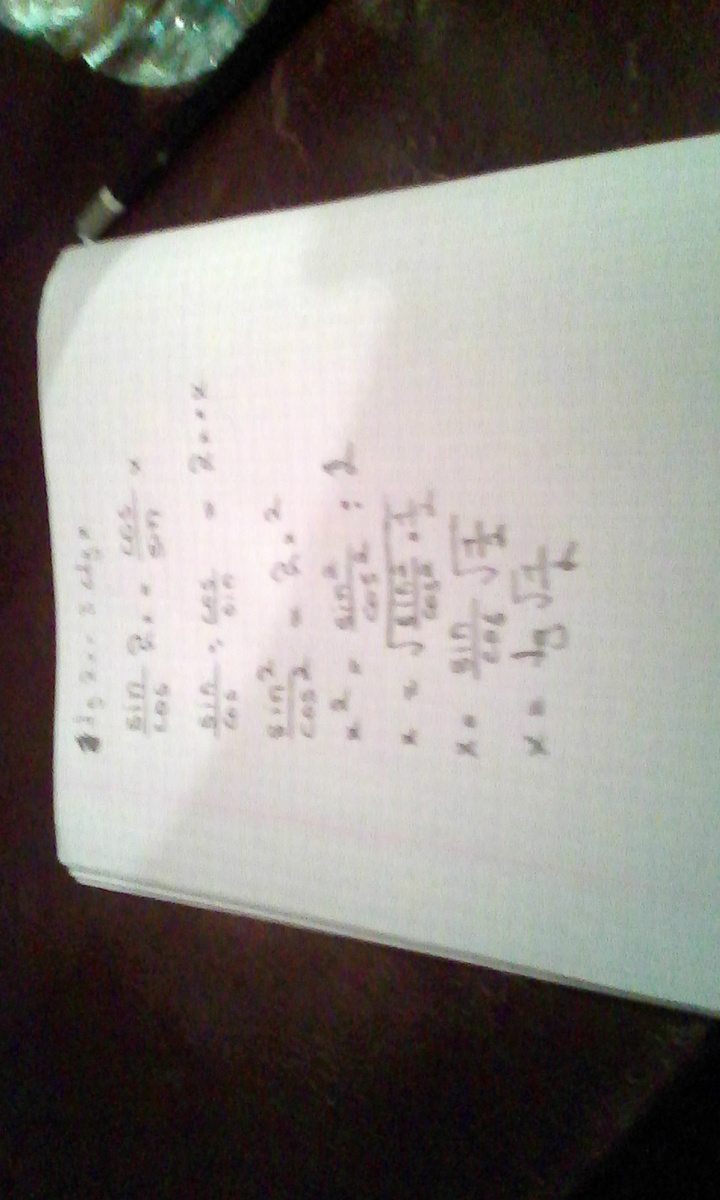 tg 2x = ctg x
sin/cos 2x = cos/sin x
sin/cos : cos/sin = 2x · x
sin²/cos² = 2x²
x² = sin²/cos² : 2
x = √(sin²/cos² · 1/2)
x = sin/cos √(1/2)
x = tg √(1/2)